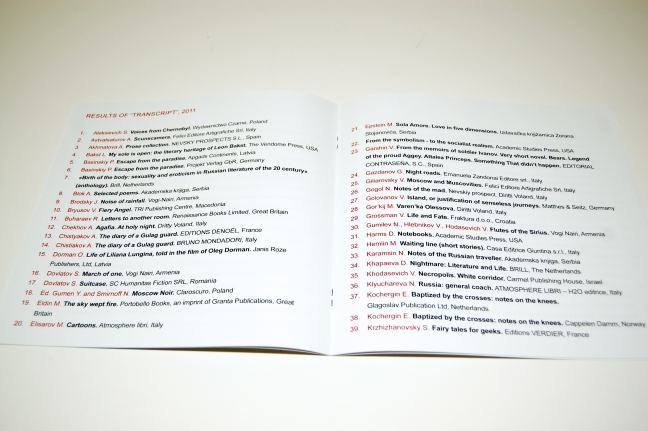 RESULTS OF "TRANSCRIPT", 2011
1. Aleksievich S. Voices from Chernobyl. Wydawnictwo Czarne, Poland
2. Astvatsaturov A. Scunscamera. Felici Editore Artigrafiche Srl, Italy
3. Akhmatova A. Prose collection. NEVSKY PROSPECTS S.L., Spain
4. Bakst L. My sole is open: the literary heritage of Leon Bakst. The Vendome Press, USA
5. Basinskiy P. Escape from the paradise. Apgads Continents, Latvia
6. Basinskiy P. Escape from the paradise. Projekt Verlag GbR, Germany
7. «Birth of the body: sexuality and eroticism in Russian literature of the 20 century»
(anthology). Brill, Netherlands
8. Blok A. Selected poems. Akademska knjiga, Serbia
9. Brodsky J. Noise of rainfall. Vogi-Nairi, Armenia
10. Bryusov V. Fiery Angel. TRI Publishing Centre, Macedonia
11. Buharaev R. Letters to another room. Renaissance Books Limited, Great Britain
12. Chekhov A. Agafia. At holy night. Dritty Voland, Italy
13. Chistyakov A. The diary of a Gulag guard. EDITIONS DENOËL, France
14. Chistiakov A. The diary of a Gulag guard. BRUNO MONDADORI, Italy
15. Dorman O. Life of Liliana Lungina, told in the film of Oleg Dorman. Janis Roze
Publishers, Ltd, Latvia
16. Dovlatov S. March of one. Vogi Nairi, Armenia
17. Dovlatov S. Suitcase. SC Humanitas Fiction SRL, Romania
18. Ed. Gumen Y. and Smirnoff N. Moscow Noir. Claroscuro, Poland
19. Eidin M. The sky wept fire. Portobello Books, an imprint of Granta Publications, Great
Britain
20. Elisarov M. Cartoons. Atmosphere libri, Italy
21. Epstein M. Sola Amore. Love in five dimensions. Izdavačka knjižarnica Zorana
Stojanovića, Serbia
22. From the symbolism - to the socialist realism. Academic Studies Press, USA
23. Garshin V. From the memoirs of soldier Ivanov. Very short novel. Bears. Legend
of the proud Aggey. Attalea Princeps. Something That didn't happen. EDITORIAL
CONTRASEÑA, S.C., Spain
24. Gazdanov G. Night roads. Emanuela Zandonai Editore srl., Italy
25. Giliarovsky V. Moscow and Muscovities. Felici Editore Artigrafiche Srl, Italy
26. Gogol N. Notes of the mad. Nevsky prospect, Diritti Voland, Italy
27. Golovanov V. Island, or justification of senseless journeys. Matthes & Seitz, Germany
28. Gor'kij M. Varen'ka Olessova. Diritti Voland, Italy
29. Grossman V. Life and Fate. Fraktura d.o.o., Croatia
30. Gumilev N., Hlebnikov V., Hodasevich V. Flutes of the Sirius. Vogi Nairi, Armenia
31. Harms D. Notebooks. Academic Studies Press, USA
32. Hemlin M. Waiting line (short stories). Casa Editrice Giuntina s.r.l., Italy
33. Karamsin N. Notes of the Russian traveller. Akademska knjiga, Serbia
34. Khapaeva D. Nightmare: Literature and Life. BRILL, The Netherlands
35. Khodasevich V. Necropolis. White corridor. Carmel Publishing House, Israel
36. Klyuchareva N. Russia: general coach. ATMOSPHERE LIBRI – H2O editrice, Italy
37. Kochergin E. Baptized by the crosses: notes on the knees.
Glagoslav Publication Ltd, Netherlands.
38. Kochergin E. Baptized by the crosses: notes on the knees. Cappelen Damm, Norway
39. Krzhizhanovsky S. Fairy tales for geeks. Editions VERDIER, France